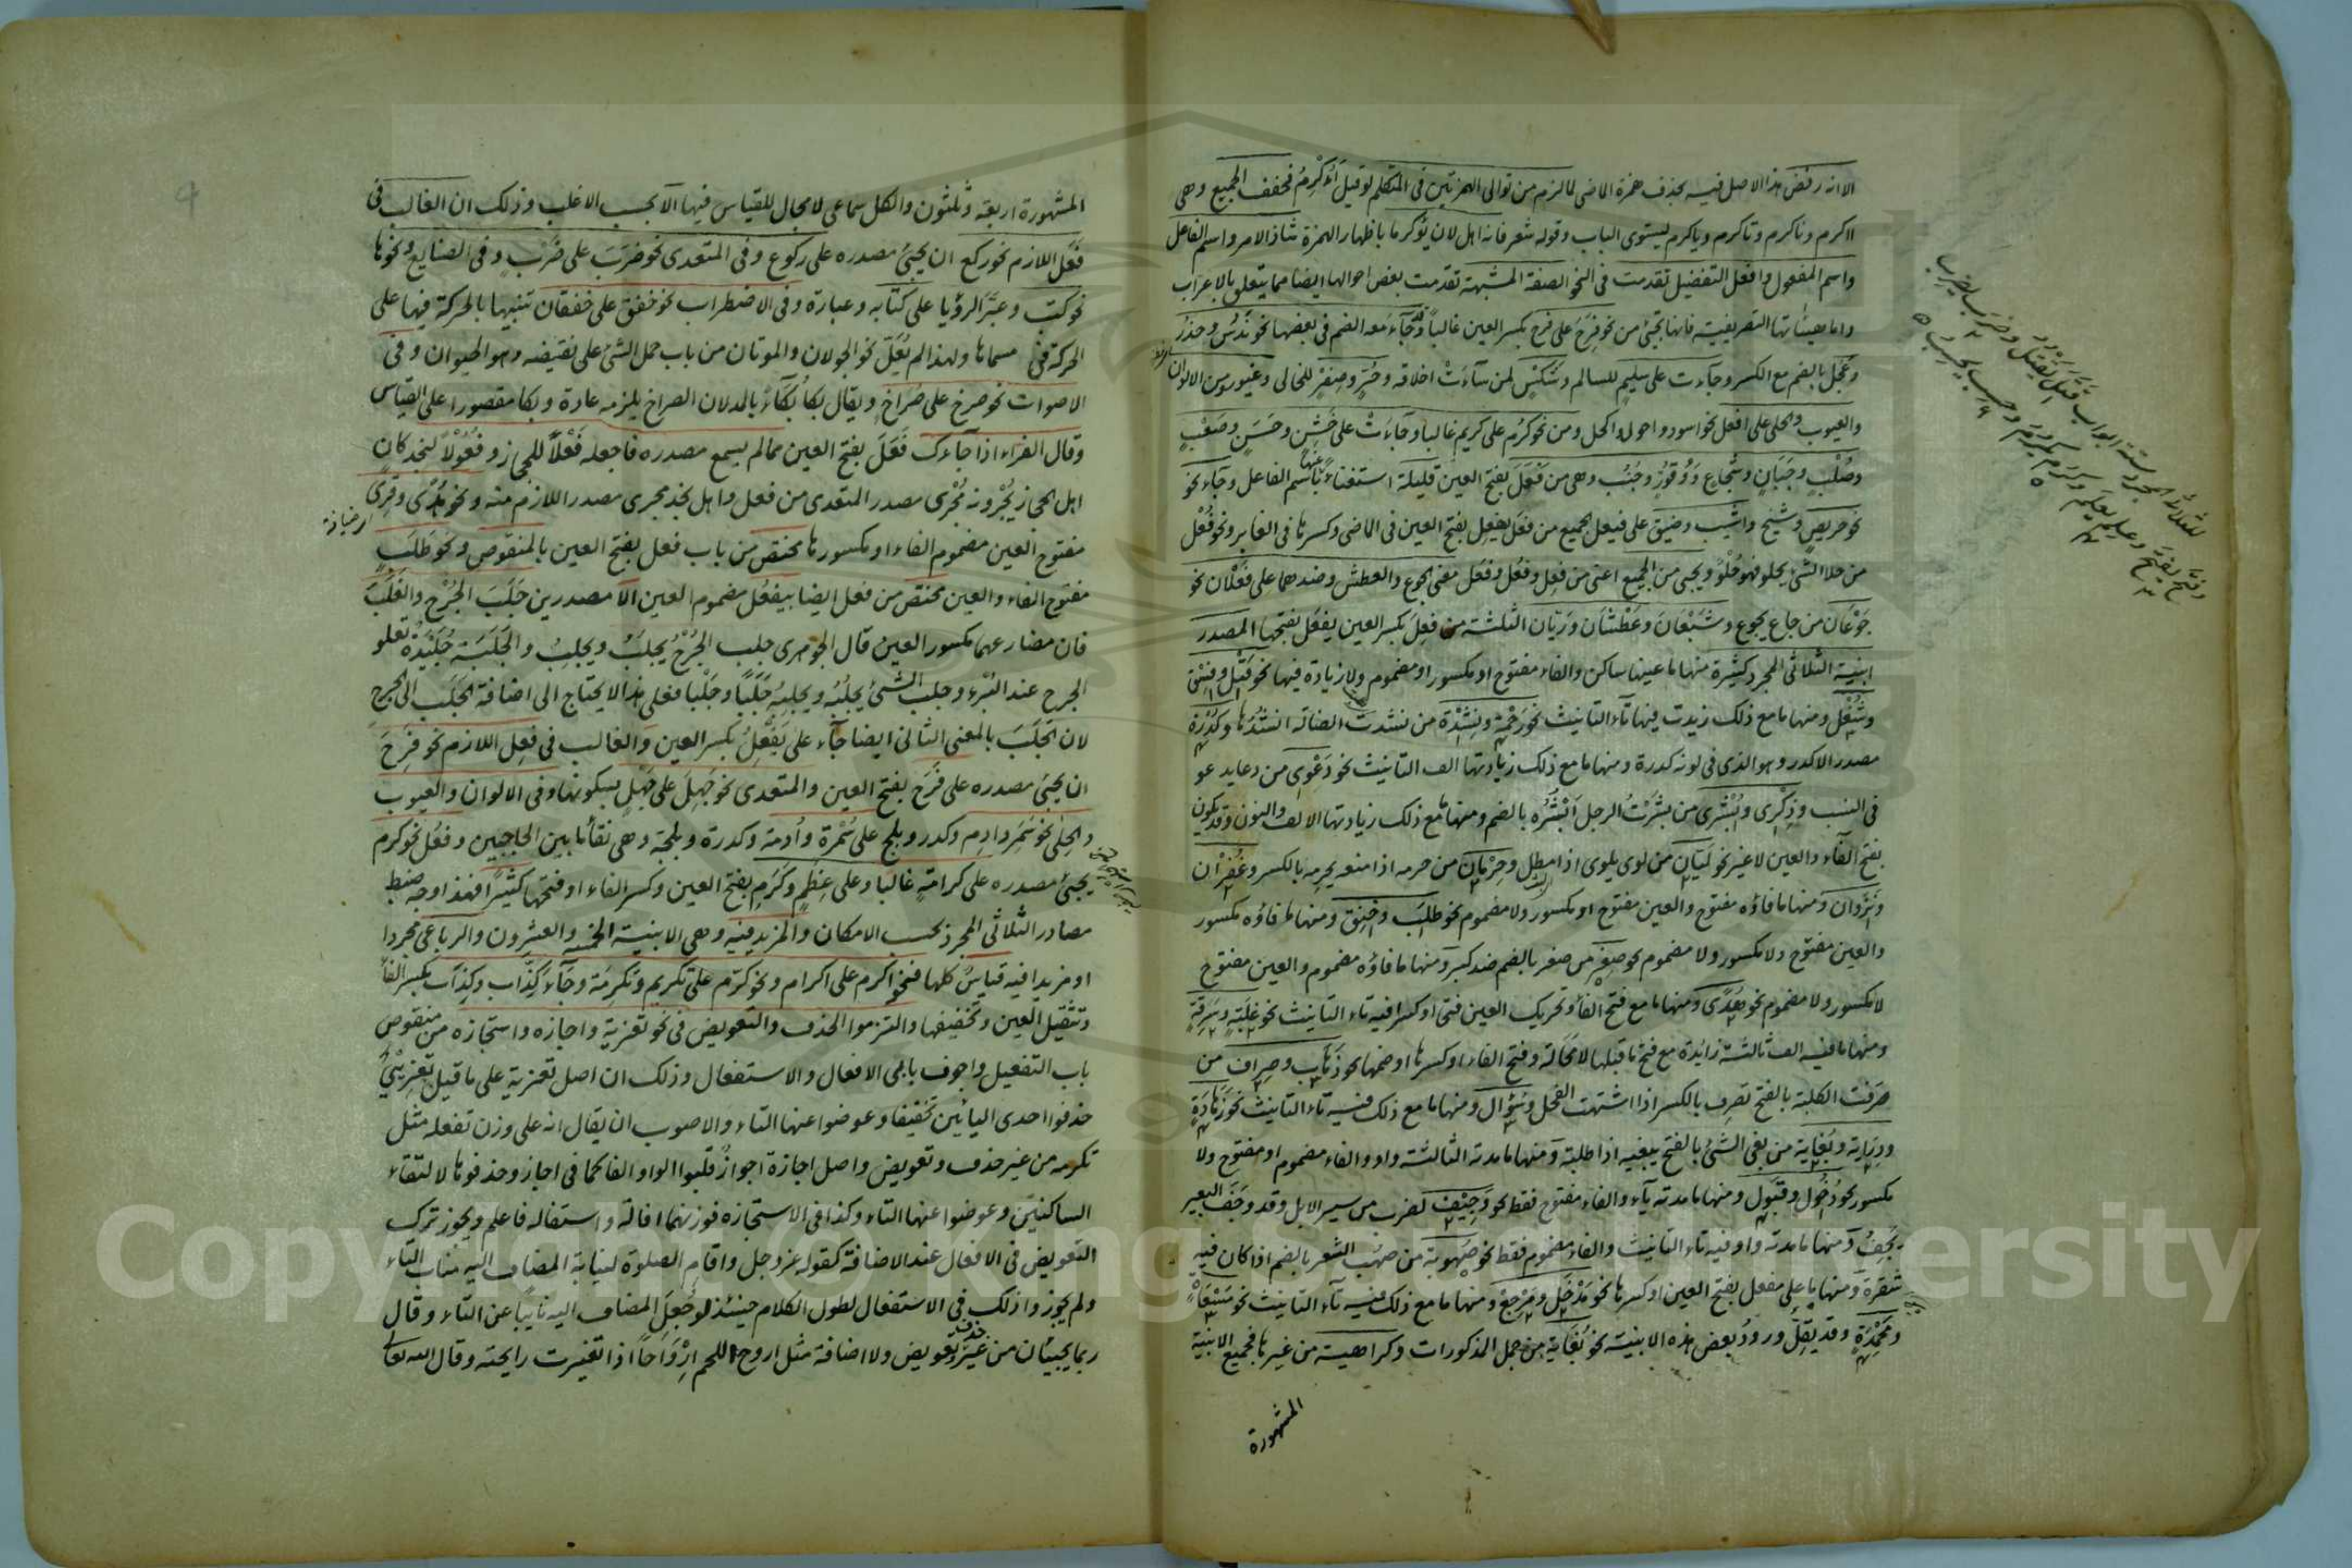 الا انه رفض هذا الاصل فيه بحذف همزة الاضى لما لزم من توالى الهمزتين فى المتكلم لو قيل أأكرم فخفف الجميع وهى
اكرم ونكرم وتكرم ويكرم ليستوى الباب وقوله شعر فانه اهل لان يؤكرما باظهار الهمزة شاذ الامر واسم الفاعل
واسم المفعول وافعل التفضيل تقدمت فى النحو الصفة المشبهة تقدمت بعض احوالها ايضا مما يتعلق بالاعراب
واما التصريفية فانها تجئ من نحو فَرِحَ على فرح بكسر العين غالبا وقد جآء معه الضم فى بعضها نحو نَدُس وحذر
وعجل بالضم مع الكسر وجآءت على سليم للسالم وشَكْسٍ لمن سآءت اخلاقه وحُرٍّ وصِفْرٍ للخالى وغيور ومن الالوان
والعيوب والحلى على افعل نحو اسود واحول واكحل ومن نحو كرُم على كريم غالبا وجآءت على خَشِنٍ وحَسَنٍ وصَعْبٍ
وصُلْبٍ وجَبَانٍ وشُجاعٍ ووقورٍ وجُنُبٍ وهى من فَعَلَ بفتح العين قليلة استغناءً عنها باسم الفاعل وجآء نحو
نحو حريص وشيخ واشيب وضيق على فيعل الجميع من فعَل يفعِل بفتح العين فى الماضى وكسرها فى الغابر ونحو فُعْل
من حلا الشئ يحلو فهو حُلْوٌ ويجئ من الجميع اعنى من فعِل وفعُل وفعَل معنى الجوع والعطش وضدهما على فَعْلان نحو
جَوْعَان من جاع يجوع وشَبْعَان وعَطْشَان ورَيّان الثلثة من فعِل بكسر العين يفعَل بفتحها المصدر
ابنية الثلاثى المجرد كثيرة منها ما عينها ساكن والفاء مفتوح او مكسور او مضموم ولا زيادة فيها نحو قَتْل وفِسْق
وشُغْل ومنها ما مع ذلك زيدت فيها تآء التانيث نحو رَحْمَة ونِشْدَة من نشدت الضالة انشُدها وكُدْرَة
مصدر الاكدر وهو الذى فى لونه كدرة ومنها ما مع ذلك زيادتها الف التانيث نحو دَعْوى من دعا يدعو
فى النسب وذِكْرى وبُشْرى من بَشَرْتُ الرجل اَبْشُرُه بالضم ومنها مع ذلك زيادتها الالف والنون وقد يكون
بفتح الفآء والعين لا غير نحو لَيّان من لوى يلوى اذا مطل وحِرْمان من حرمه اذا منعه يحرمه بالكسر وغُفْران
ونَزَوان ومنها ما فاؤه مفتوح والعين مفتوح او مكسور ولا مضموم نحو طلَب وخنِق ومنها ما فاؤه مكسور
والعين مفتوح ولا مكسور ولا مضموم نحو صِغَر من صغر بالضم ضد كبر ومنها ما فاؤه مضموم والعين مفتوح
لا مكسور ولا مضموم نحو هُدًى ومنها ما مع فتح الفا وتحريك العين فتحا او كسرا فيه تاء التانيث نحو غلَبَة وسرِقة
ومنها ما فيه الف ثالثة زائدة مع فتح ما قبلها لا محالة وفتح الفاء او كسرها او ضمها نحو ذَهاب وصِراف من
صرفت الكلبة بالفتح تصرف بالكسر اذا اشتهت الفحل وسُؤال ومنها ما مع ذلك فيه تاء التانيث نحو زَهادَة
ودِرَاية وبُغاية من بغى الشئ بالفتح يبغيه اذا طلبة ومنها ما مدته الثالثة واو والفاء مضموم او مفتوح ولا
مكسور نحو دُخُول وقَبُول ومنها ما مدته يآء والفاء مفتوح فقط نحو وَجِيْف لضرب من سير الابل وقد وجَفَ البعير
يجِفُ ومنها ما مدته واو فيه تاء التانيث والفاء مضموم فقط نحو صُهوبة من صهُب الشعر بالضم اذا كان فيه
شقرة ومنها ما على مفعل بفتح العين او كسرها نحو مَدْخَل ومَرْجِع ومنها ما مع ذلك فيه تآء التانيث نحو مَسْعَاة
ومَحْمِدَةٍ وقد يقل ورودُ بعض هذه الابنية نحو بُغَاية من جمل المذكورات وكراهية من غيرها فجميع الابنية
المشهورة
للثلاثى المجرد ستة ابواب قتَل يقتُل وضرَب يضرِب
وفتَح يفتَح وعلِم يعلَم وكرُم يكرُم وحسِب يحسِب
المشهورة اربعة وثلثون والكل سماعى لا مجال للقياس فيها الا بحسب الاغلب وذلك ان الغالب فى
فَعَل اللازم نحو ركع ان يجئ مصدره على ركوع وفى المتعدى نحو ضرَبَ على ضَرْبٍ وفى الصنايع ونحوها
نحو كتب وعبَّر الرؤيا على كتابه وعبارة وفى الاضطراب نحو خفق على خفقان تنبيها بالحركة فيها على
الحركة فى مسماها ولهذا لم يُعَلّ نحو الجولان والموتان من باب حمل الشئ على نقيضه وهو الحيوان وفى
الاصوات نحو صرخ على صُرَاخٍ ويقال بكا بُكآءً بالمد لان الصراخ يلزمه عادة وبكا مقصورا على القياس
وقال الفراء اذا جآءك فَعَلَ بفتح العين مما لم يسمع مصدره فاجعله فَعْلاً للحجاز وفُعُوْلاً لنجد كان
اهل الحجاز يُجْرونه مُجْرى مصدر المتعدى من فعل واهل نجد مجرى مصدر اللازم منه ونحو هُدًى وقِرى
مفتوح العين مضموم الفاء او مكسورها مختص من باب فعل بفتح العين بالمنقوص ونحو طَلَبٍ
مفتوح الفاء والعين مختص من فعل ايضا بيفعُل مضموم العين الا مصدرين جَلَبَ الجُرْح والغَلَبَ
فان مضارعهما مكسور العين قال الجوهرى جلب الجُرْحُ يجلُبُ ويجلِبُ والجَلَبَة جُلَيْدة تعلو
الجرح عند البُرْء وجلب الشئ يجلُبُه ويجلِبُه جَلَبًا وجَلْبا فعلى هذا لا يحتاج الى اضافة الجَلَب الى الجرح
لان الجَلَبَ بالمعنى الثانى ايضا جآء على يَفْعِلُ بكسر العين والغالب فى فعِل اللازم نحو فَرِحَ
ان يجئ مصدره على فَرَحَ بفتح العين والمتعدى نحو جَهِلَ على جَهْلٍ بسكونها وفى الالوان والعيوب
والحِلى نحو سَمِرَ وادِم وكدر وبلج على سُمْرة واُدمة وكدرة وبلجة وهى نقاء ما بين الحاجبين وفعُل نحو كرم
يجئ مصدره على كرامةٍ غالبا وعلى عِظَمٍ وكَرَم بفتح العين وكسر الفاء او فتحها كثيرا فهذا وجه ضبط
مصادر الثلاثى المجرد بحسب الامكان والمزيد فيه وهى الابنية الخمسة والعشرون والرباعى مجردا
او مزيدا فيه قياسٌ كلها فنحو اكرم على اكرام ونحو كرّم على تكريم وتكرمَة وجآء كِذّاب وكِذَاب بكسر الفا
وتثقيل العين وتخفيفها والتزموا الحذف والتعويض فى نحو تعزية واجازه واستجازه من منقوص
باب التفعيل واجوف بابى الافعال والاستفعال وذلك ان اصل تعزية على ما قيل تعزِيْيٌ
حذفوا احدى اليائين تخفيفا وعوضوا عنها التاء والاصوب ان يقال انه على وزن تفعله مثل
تكرمه من غير حذف وتعويض واصل اجازة اجوازٌ قلبوا الواو الفا كما فى اجاز وحذفوها لالتقاء
الساكنين وعوضوا عنها التاء وكذا فى الاستجازه فوزنهما افالة واستفاله فاعلم ويجوز ترك
التعويض فى الافعال عند الاضافة كقوله عز وجل واقام الصلوة لنيابة المضاف اليه مناب التاء
ولم يجوز واذلك فى الاستفعال لطول الكلام حينئذ لو جُعِلَ المضاف اليه نايبا عن التاء وقال
ربما يجيئان من غير حذف وتعويض ولا اضافة مثل اروح اللحم اِرْوَاحًا اذا تغيرت رايحته وقال الله تعالى